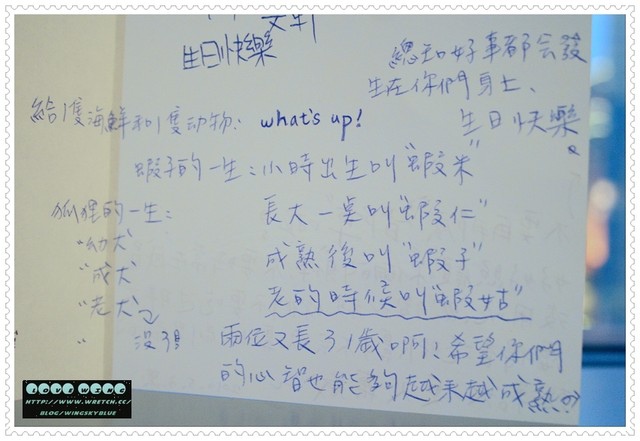 生日快樂
總知好事都会發
生在你們身上、
生日快樂
給1隻海鮮和1隻动物： what's up!
蝦子的一生：小時出生叫"蝦米"
長大一點叫"蝦仁"
成熟後叫"蝦子"
老的時候叫"蝦姑"
狐狸的一生：
"幼犬
"成犬
"老犬"
" 沒了!
兩位又長了1歲啊！希望你們
的心智也能夠越來越成熟
HTTP://WWW.WRETCH.CC/
BLOG/WINGSKYBLUE